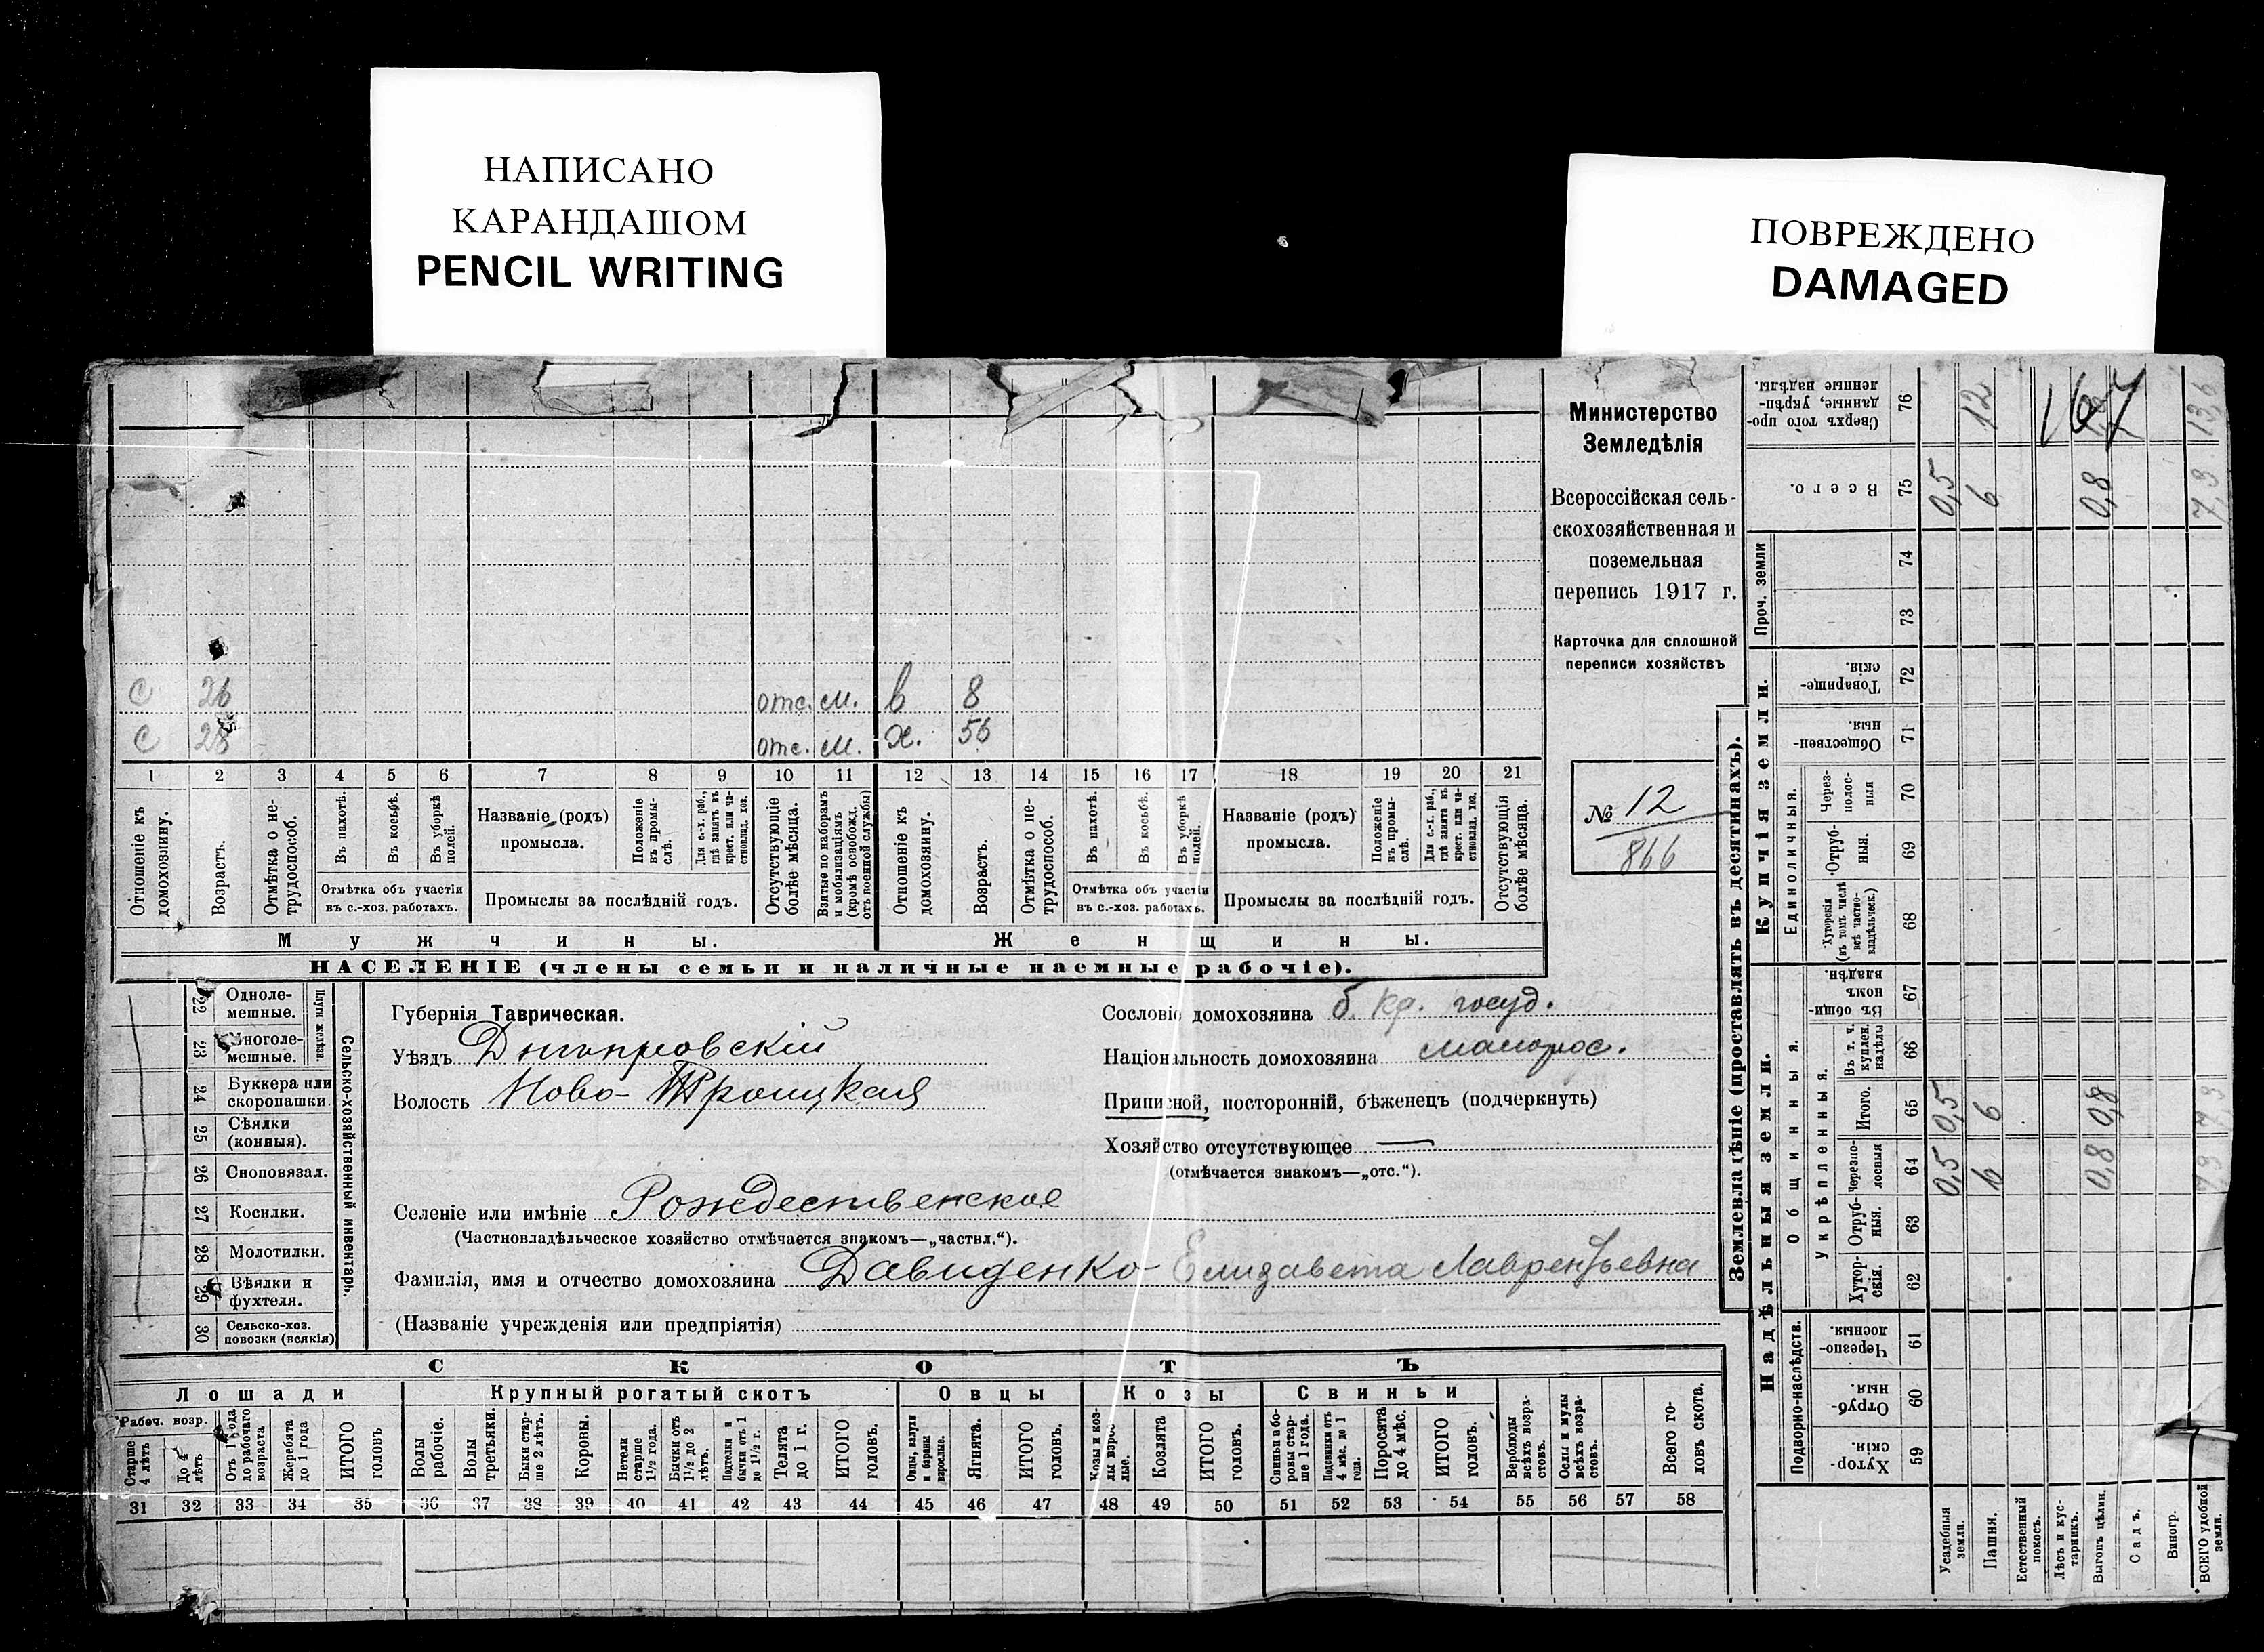 НАПИСАНО
КАРАНДАШОМ
PENCIL WRITING
ПОВРЕЖДЕНО
DAMAGED
Министерство
Земледѣлія
Всероссійская сель-
скохозяйственная и
поземельная
перепись 1917 г.
Карточка для сплошной
переписи хозяйствъ
№ 12
866
с 26 отс. м. в 8
с 28 отс. м. х. 56
1 2 3 4 5 6 7 8 9 10 11 12 13 14 15 16 17 18 19 20 21
Отношеніе къ домохозяину.
Возрастъ.
Отмѣтка о не-трудоспособ.
Въ пахотѣ.
Въ косьбѣ.
Въ уборкѣ полей.
Отмѣтка объ участіи
въ с.-хоз. работахъ.
Названіе (родъ)
промысла.
Положеніе въ промы-слѣ.
Для с.-х. раб., гдѣ занятъ въ крест. или ча-стновлад. хоз.
Промыслы за послѣдній годъ.
Отсутствующіе болѣе мѣсяца.
Взятые по наборамъ и мобилизаціямъ (кромѣ освобожд. отъ военной службы)
Отношеніе къ домохозяину.
Возрастъ.
Отмѣтка о не-трудоспособ.
Въ пахотѣ.
Въ косьбѣ.
Въ уборкѣ полей.
Отмѣтка объ участіи
въ с.-хоз. работахъ.
Названіе (родъ)
промысла.
Положеніе въ промы-слѣ.
Для с.-х. раб., гдѣ занята въ крест. или ча-стновлад. хоз.
Промыслы за послѣдній годъ.
Отсутствующія болѣе мѣсяца.
Мужчины.
Женщины.
НАСЕЛЕНІЕ (члены семьи и наличные наемные рабочіе).
Сельско-хозяйственный инвентарь.
Плуги желѣзн.
22 Одноле-мешные.
23 Многоле-мешные.
24 Буккера или скоропашки.
25 Сѣялки (конныя).
26 Сноповязал.
27 Косилки.
28 Молотилки.
29 Вѣялки и фухтеля.
30 Сельско-хоз. повозки (всякія)
Губернія Таврическая.
Уѣздъ Днѣпровскій
Волость Ново-Троицкая
Селеніе или имѣніе Рождественское
(Частновладѣльческое хозяйство отмѣчается знакомъ—„частвл.“).
Фамилія, имя и отчество домохозяина Давиденко Елизавета Лаврентьевна
(Названіе учрежденія или предпріятія)
Сословіе домохозяина б. кр. госуд.
Національность домохозяина малорос.
Приписной, посторонній, бѣженецъ (подчеркнуть)
Хозяйство отсутствующее —
(отмѣчается знакомъ—„отс.“).
СКОТЪ
Лошади
Крупный рогатый скотъ
Овцы
Козы
Свиньи
Рабоч. возр.
Старше 4 лѣтъ
До 4 лѣтъ
Отъ 1 года до рабочаго возраста
Жеребята до 1 года
ИТОГО головъ
Волы рабочіе.
Волы третьяки.
Быки стар-ше 2 лѣтъ.
Коровы.
Нетели старше 1½ года.
Бычки отъ 1½ до 2 лѣтъ.
Подтелки и бычки отъ 1 до 1½ г.
Телята до 1 г.
ИТОГО головъ.
Овцы, валухи и бараны взрослые.
Ягнята.
ИТОГО головъ.
Козы и коз-лы взрос-лые.
Козлята
ИТОГО головъ.
Свиньи и бо-ровы стар-ше 1 года.
Подсвинки отъ 4 мѣс. до 1 года.
Поросята до 4 мѣс.
ИТОГО головъ.
Верблюды всѣхъ возра-стовъ.
Ослы и мулы всѣхъ возра-стовъ.
Всего го-ловъ скота.
31 32 33 34 35 36 37 38 39 40 41 42 43 44 45 46 47 48 49 50 51 52 53 54 55 56 57 58
Землевладѣніе (проставлять въ десятинахъ).
Надѣльныя земли.
Купчія земли.
Проч. земли
Подворно-наслѣдств.
Общинныя.
Укрѣпленныя.
Единоличныя.
Сверхъ того про-данные, укрѣп-ленные надѣлы. 76 12 167 13,6
Всего. 75 0,5 6 0,8 7,3
74
73
Товарище-скія. 72
Обществен-ныя 71
Через-полос-ныя 70
Отруб-ныя. 69
Хуторскія (въ томъ числѣ всѣ частно-владѣльческ.) 68
Въ общи-номъ владѣн. 67
Въ т. ч. куплен. надѣлы 66
Итого. 65 0,5 6 0,8 7,3
Черезпо-лосныя 64 0,5 6 0,8 7,3
Отруб-ныя. 63
Хутор-скія. 62
Черезпо-лосныя. 61
Отруб-ныя 60
Хутор-скія. 59
Усадебныя земли.
Пашня.
Естественный покосъ.
Лѣсъ и кус-тарникъ.
Выгонъ цѣлин.
Садъ.
Виногр.
ВСЕГО удобной земли.